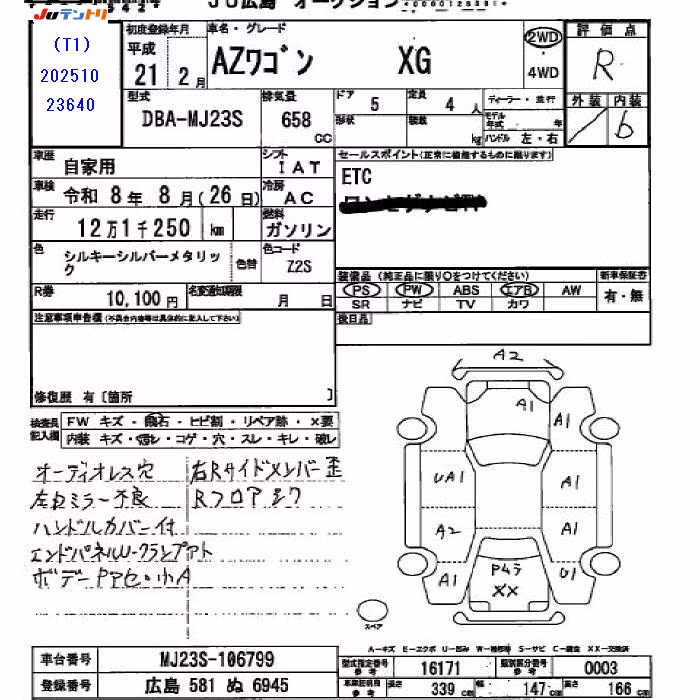 JU広島 オークション
Juテントリ
(T1)
202510
23640
初度登録年月
平成
21年 2月
車名・グレード
AZワゴン XG
2WD
4WD
評価点
R
外装 内装
/ b
型式
DBA-MJ23S
排気量
658 CC
ドア 5
定員 4 人
形状
積載 kg
ディーラー・並行
モデル年式 年
ハンドル 左・右
車歴 自家用
シフト IAT
車検 令和 8年 8月(26日)
冷房 AC
走行 12万1千250 km
燃料 ガソリン
色 シルキーシルバーメタリック
色替
色コード Z2S
R券 10,100円
名変通知期限 月 日
セールスポイント(正常に機能するものに限ります)
ETC
装備品 (純正品に限り○をつけてください)
新車保証書
PS PW ABS エアB AW
有・無
SR ナビ TV カワ
後日品
注意事項申告欄 (不具合内容等は具体的に記入して下さい)
修復歴 有〔箇所 〕
検査員記入欄
FW キズ・飛石・ヒビ割・リペア跡・X要
内装 キズ・汚レ・コゲ・穴・スレ・キレ・破レ
オーディオレス穴
右Rサイドメンバー歪
左右ミラー不良
Rフロアシワ
ハンドルカバー付
エンドパネルU・クランプアト
ボデーPアセ・小A
A2
A1
A1
UA1
A1
A2
A1
A1
U1
XX
スペア
A-キズ E-エクボ U-凹み W-補修跡 S-サビ C-腐食 XX-交換済
車台番号 MJ23S-106799
登録番号 広島 581 ぬ 6945
型式指定番号 参考 16171
類別区分番号 参考 0003
車車証明 参考 長さ 339 cm 幅 147 cm 高さ 166 cm